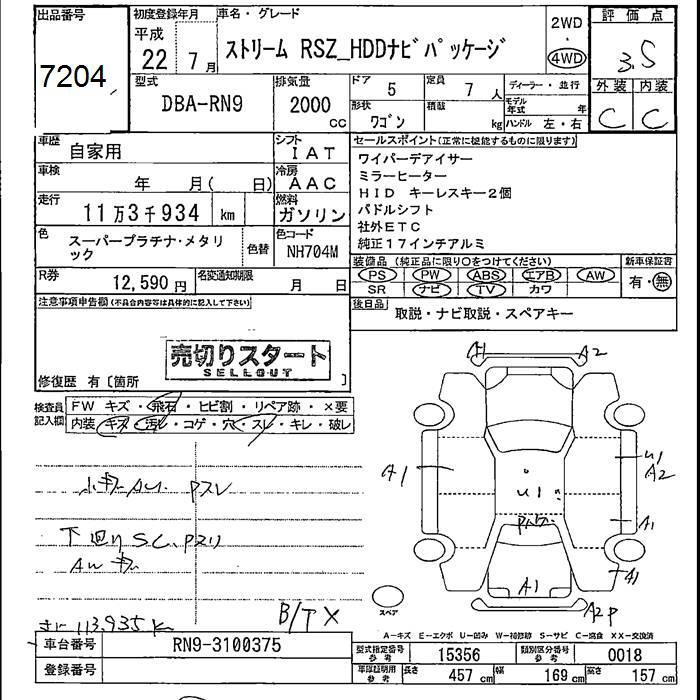 出品番号
7204
初度登録年月
平成
22 7月
車名・グレード
ストリーム RSZ_HDDナビパッケージ
2WD
・
4WD
評価点
3.5
外装 内装
C C
型式
DBA-RN9
排気量
2000
CC
ドア 5
定員 7 人
形状 ワゴン
積載 kg
ディーラー・並行
モデル年式 年式
ハンドル 左・右
車歴
自家用
シフト
IAT
車検
年 月( 日)
冷房
AAC
走行
11万3千934 km
燃料
ガソリン
色
スーパープラチナ・メタリ
ック
色替
色コード
NH704M
R券
12,590円
名変通知期限
月 日
セールスポイント(正常に機能するものに限ります)
ワイパーデアイサー
ミラーヒーター
HID キーレスキー2個
パドルシフト
社外ETC
純正17インチアルミ
装備品(純正品に限り○をつけてください)
PS PW ABS エアB AW
SR ナビ TV カワ
新車保証書
有・無
後日品
取説・ナビ取説・スペアキー
注意事項申告欄(不具合内容等は具体的に記入して下さい)
売切りスタート
SELLOUT
修復歴 有〔箇所 〕
検査員
記入欄
FW キズ・飛石・ヒビ割・リペア跡・×要
内装 キズ・汚レ・コゲ・穴・スレ・キレ・破レ
下廻り SC、Pスリ
113,935K
B/TX
A1 A2
A1
U1
A2
U1
A1
A1
A1
A2P
スペア
A-キズ E-エクボ U-凹み W-補修跡 S-サビ C-腐食 XX-交換済
車台番号
RN9-3100375
登録番号
型式指定番号
参考
15356
類別区分番号
参考
0018
車庫証明用
参考
長さ 457 cm
幅 169 cm
高さ 157 cm